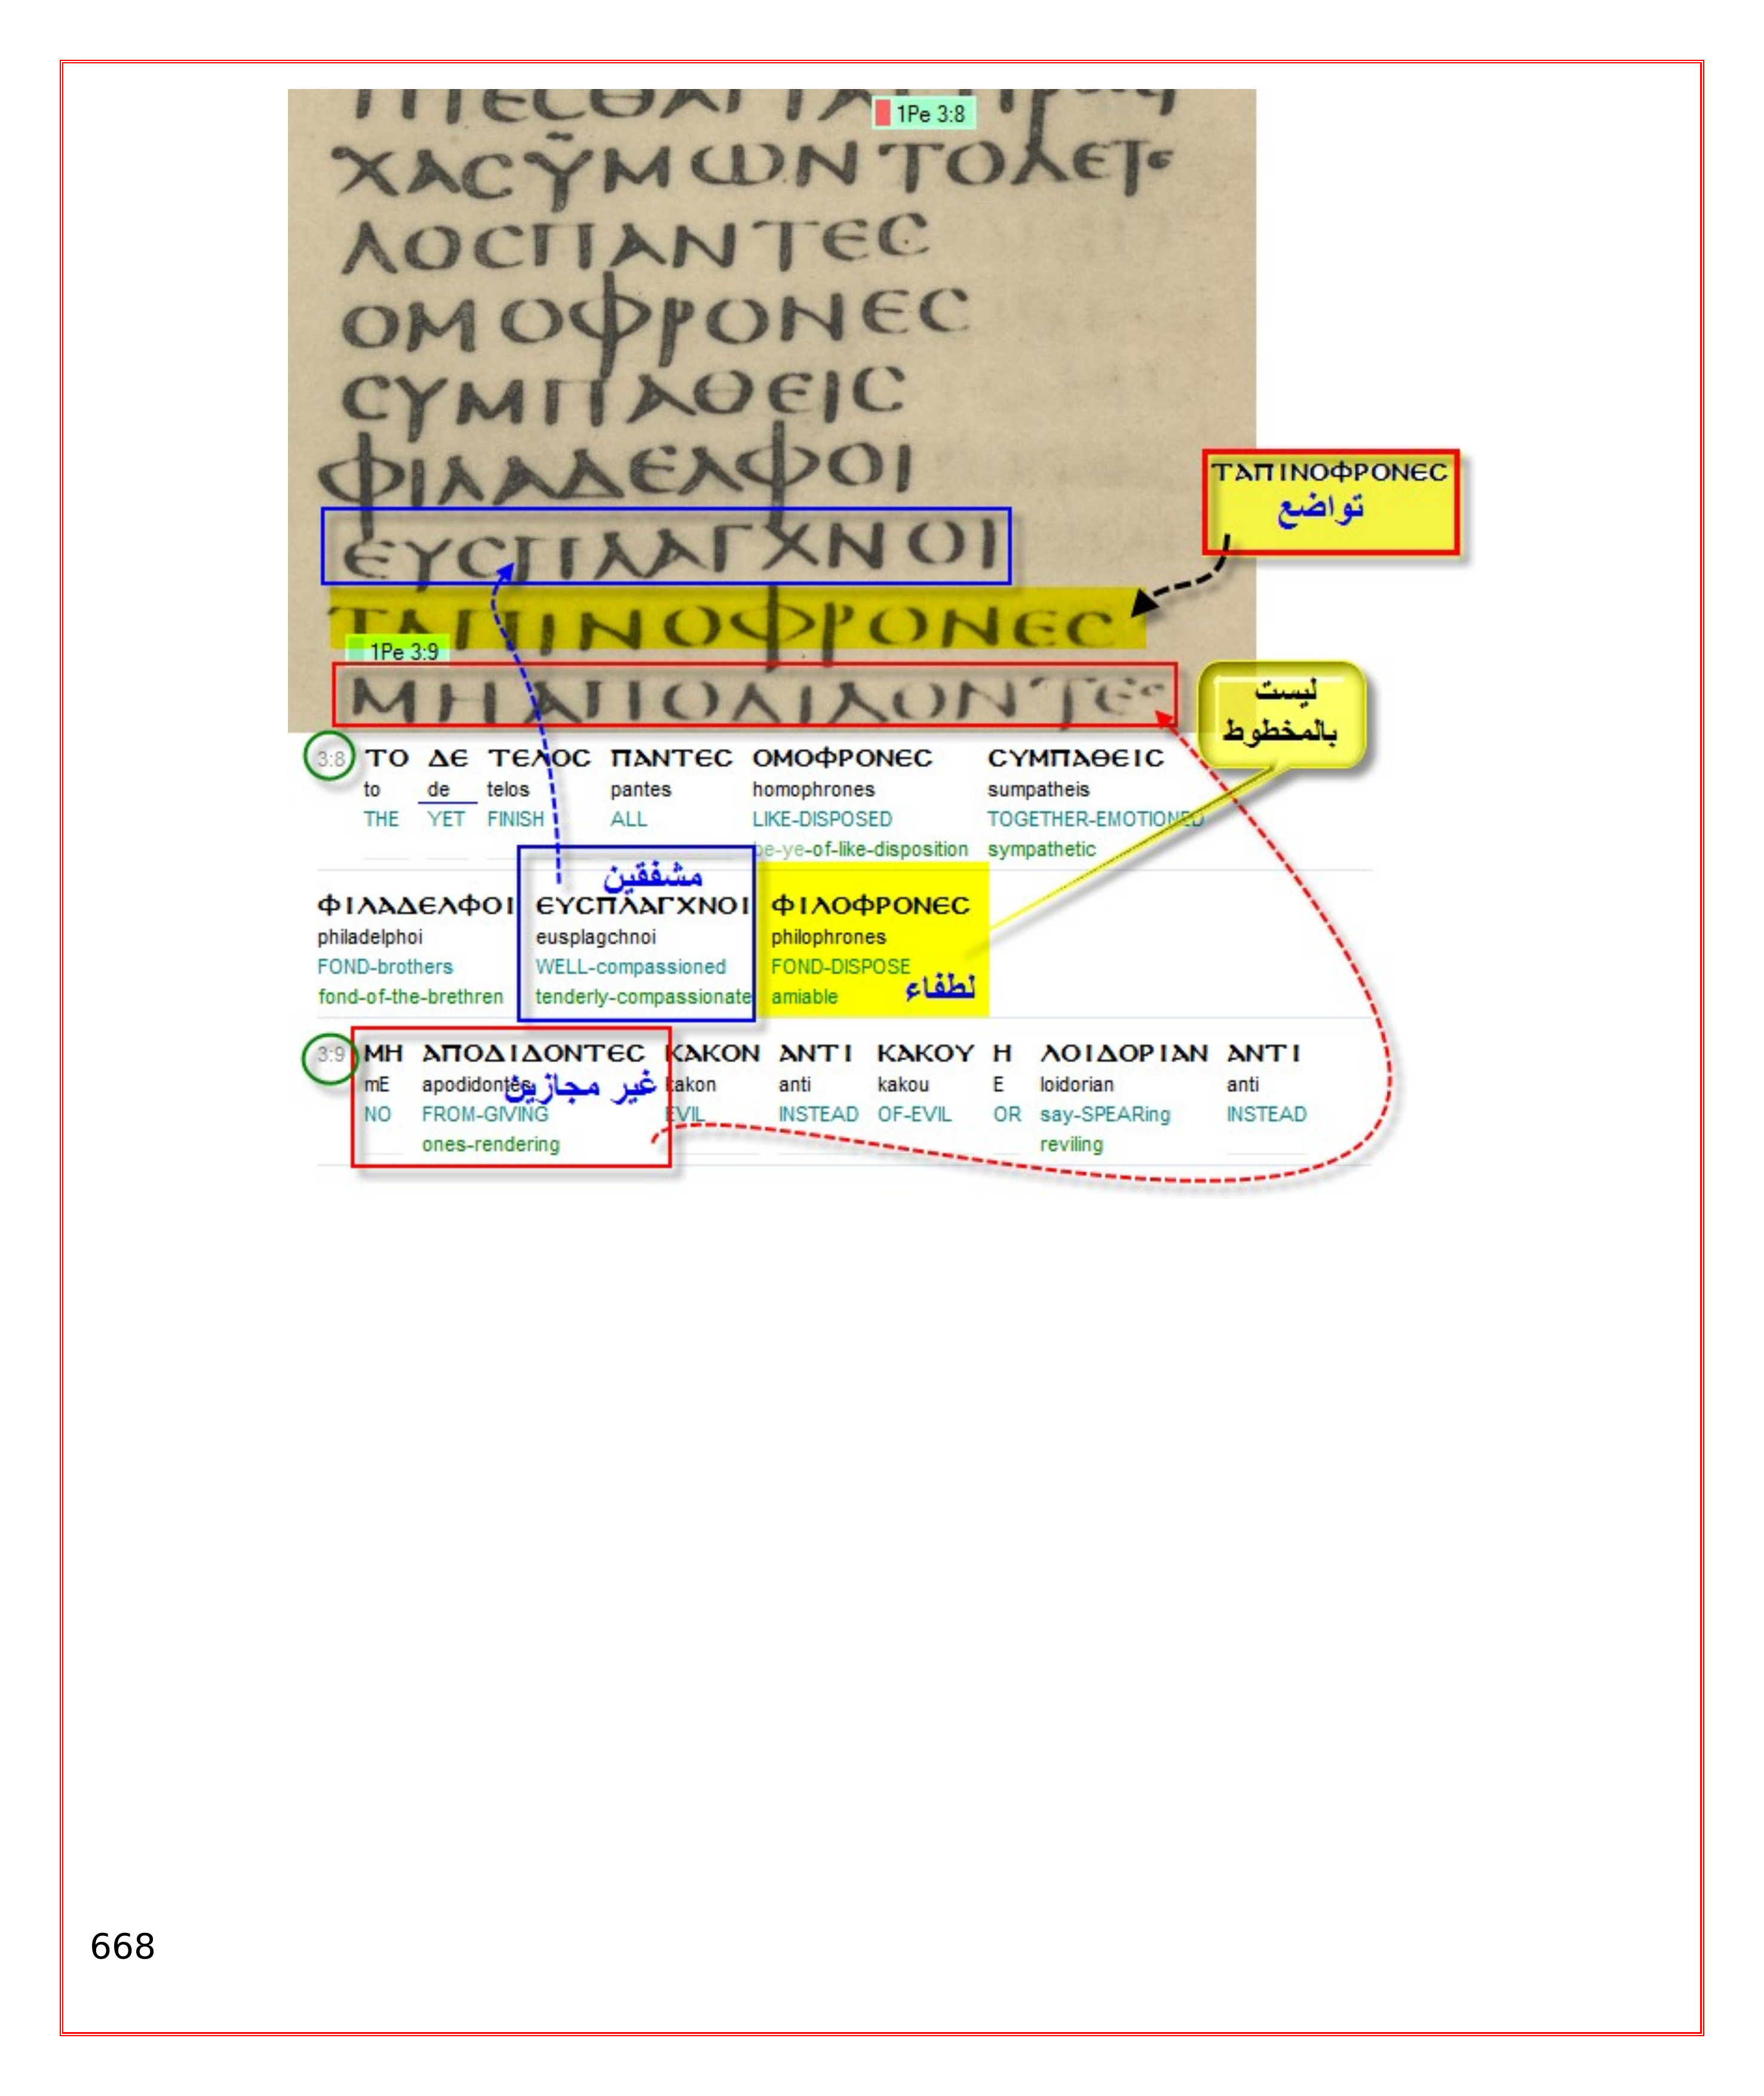 1Pe 3:8
ΧΑCΫΜⲰΝΤΟΔΕΤΕ
ΛΟCΠΑΝΤΕC
ΟΜΟΦΡΟΝΕC
CΥΜΠΑΘΕΙC
ΦΙΛΑΔΕΛΦΟΙ
ΕΥCΠΛΑΓΧΝΟΙ
ΤΑΠΙΝΟΦΡΟΝΕC
1Pe 3:9
ΜΗΑΠΟΔΙΔΟΝΤΕC
ΤΑΠΙΝΟΦΡΟΝΕC
تواضع
ليست
بالمخطوط
3:8 ΤΟ ΔΕ ΤΕΛΟC ΠΑΝΤΕC ΟΜΟΦΡΟΝΕC CΥΜΠΑΘΕΙC
to de telos pantes homophrones sumpatheis
THE YET FINISH ALL LIKE-DISPOSED TOGETHER-EMOTIONED
be-ye-of-like-disposition sympathetic
مشفقين
ΦΙΛΑΔΕΛΦΟΙ ΕΥCΠΛΑΓΧΝΟΙ ΦΙΛΟΦΡΟΝΕC
philadelphoi eusplagchnoi philophrones
FOND-brothers WELL-compassioned FOND-DISPOSE
fond-of-the-brethren tenderly-compassionate amiable
لطفاء
3:9 ΜΗ ΑΠΟΔΙΔΟΝΤΕC ΚΑΚΟΝ ΑΝΤΙ ΚΑΚΟΥ Η ΛΟΙΔΟΡΙΑΝ ΑΝΤΙ
mE apodidontes kakon anti kakou E loidorian anti
غير مجازين
NO FROM-GIVING EVIL INSTEAD OF-EVIL OR say-SPEARing INSTEAD
ones-rendering reviling
668